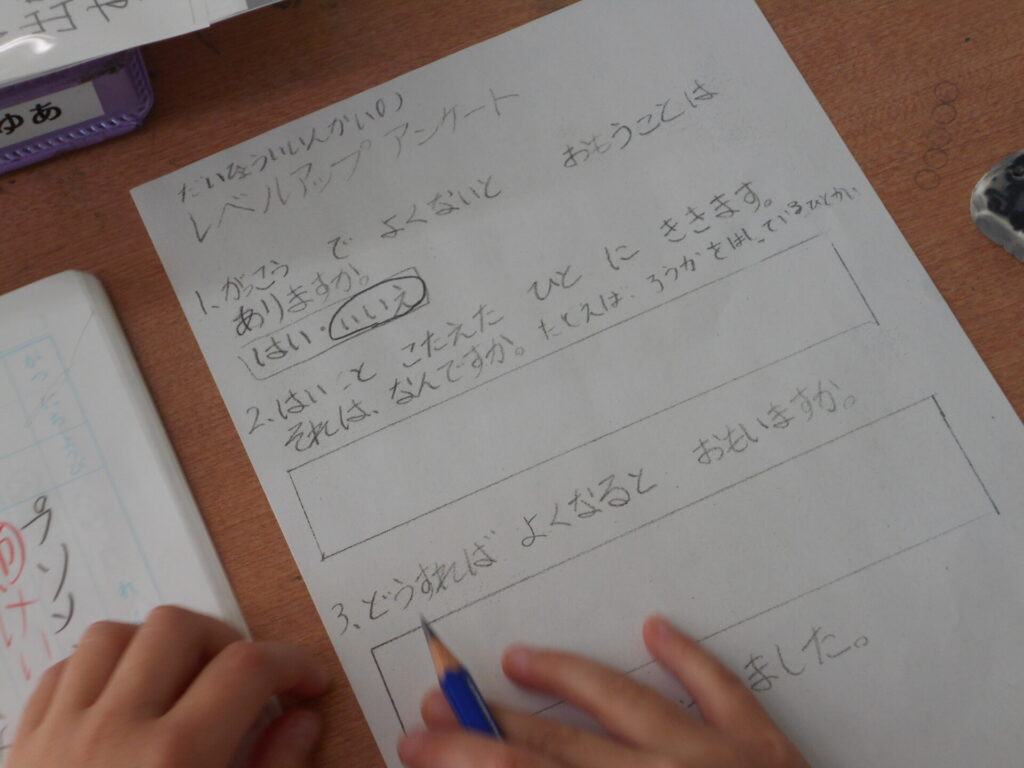 ゅあ
だいひょういいんかいの
レベルアップ アンケート
1、がっこう で よくないと おもうことは
ありますか。
はい・いいえ
2、はいと こたえた ひと に ききます。
それは、なんですか。たとえば、ろうかをはしっているひとがい
3、どうすれば よくなると おもいますか。
ました。
プリン